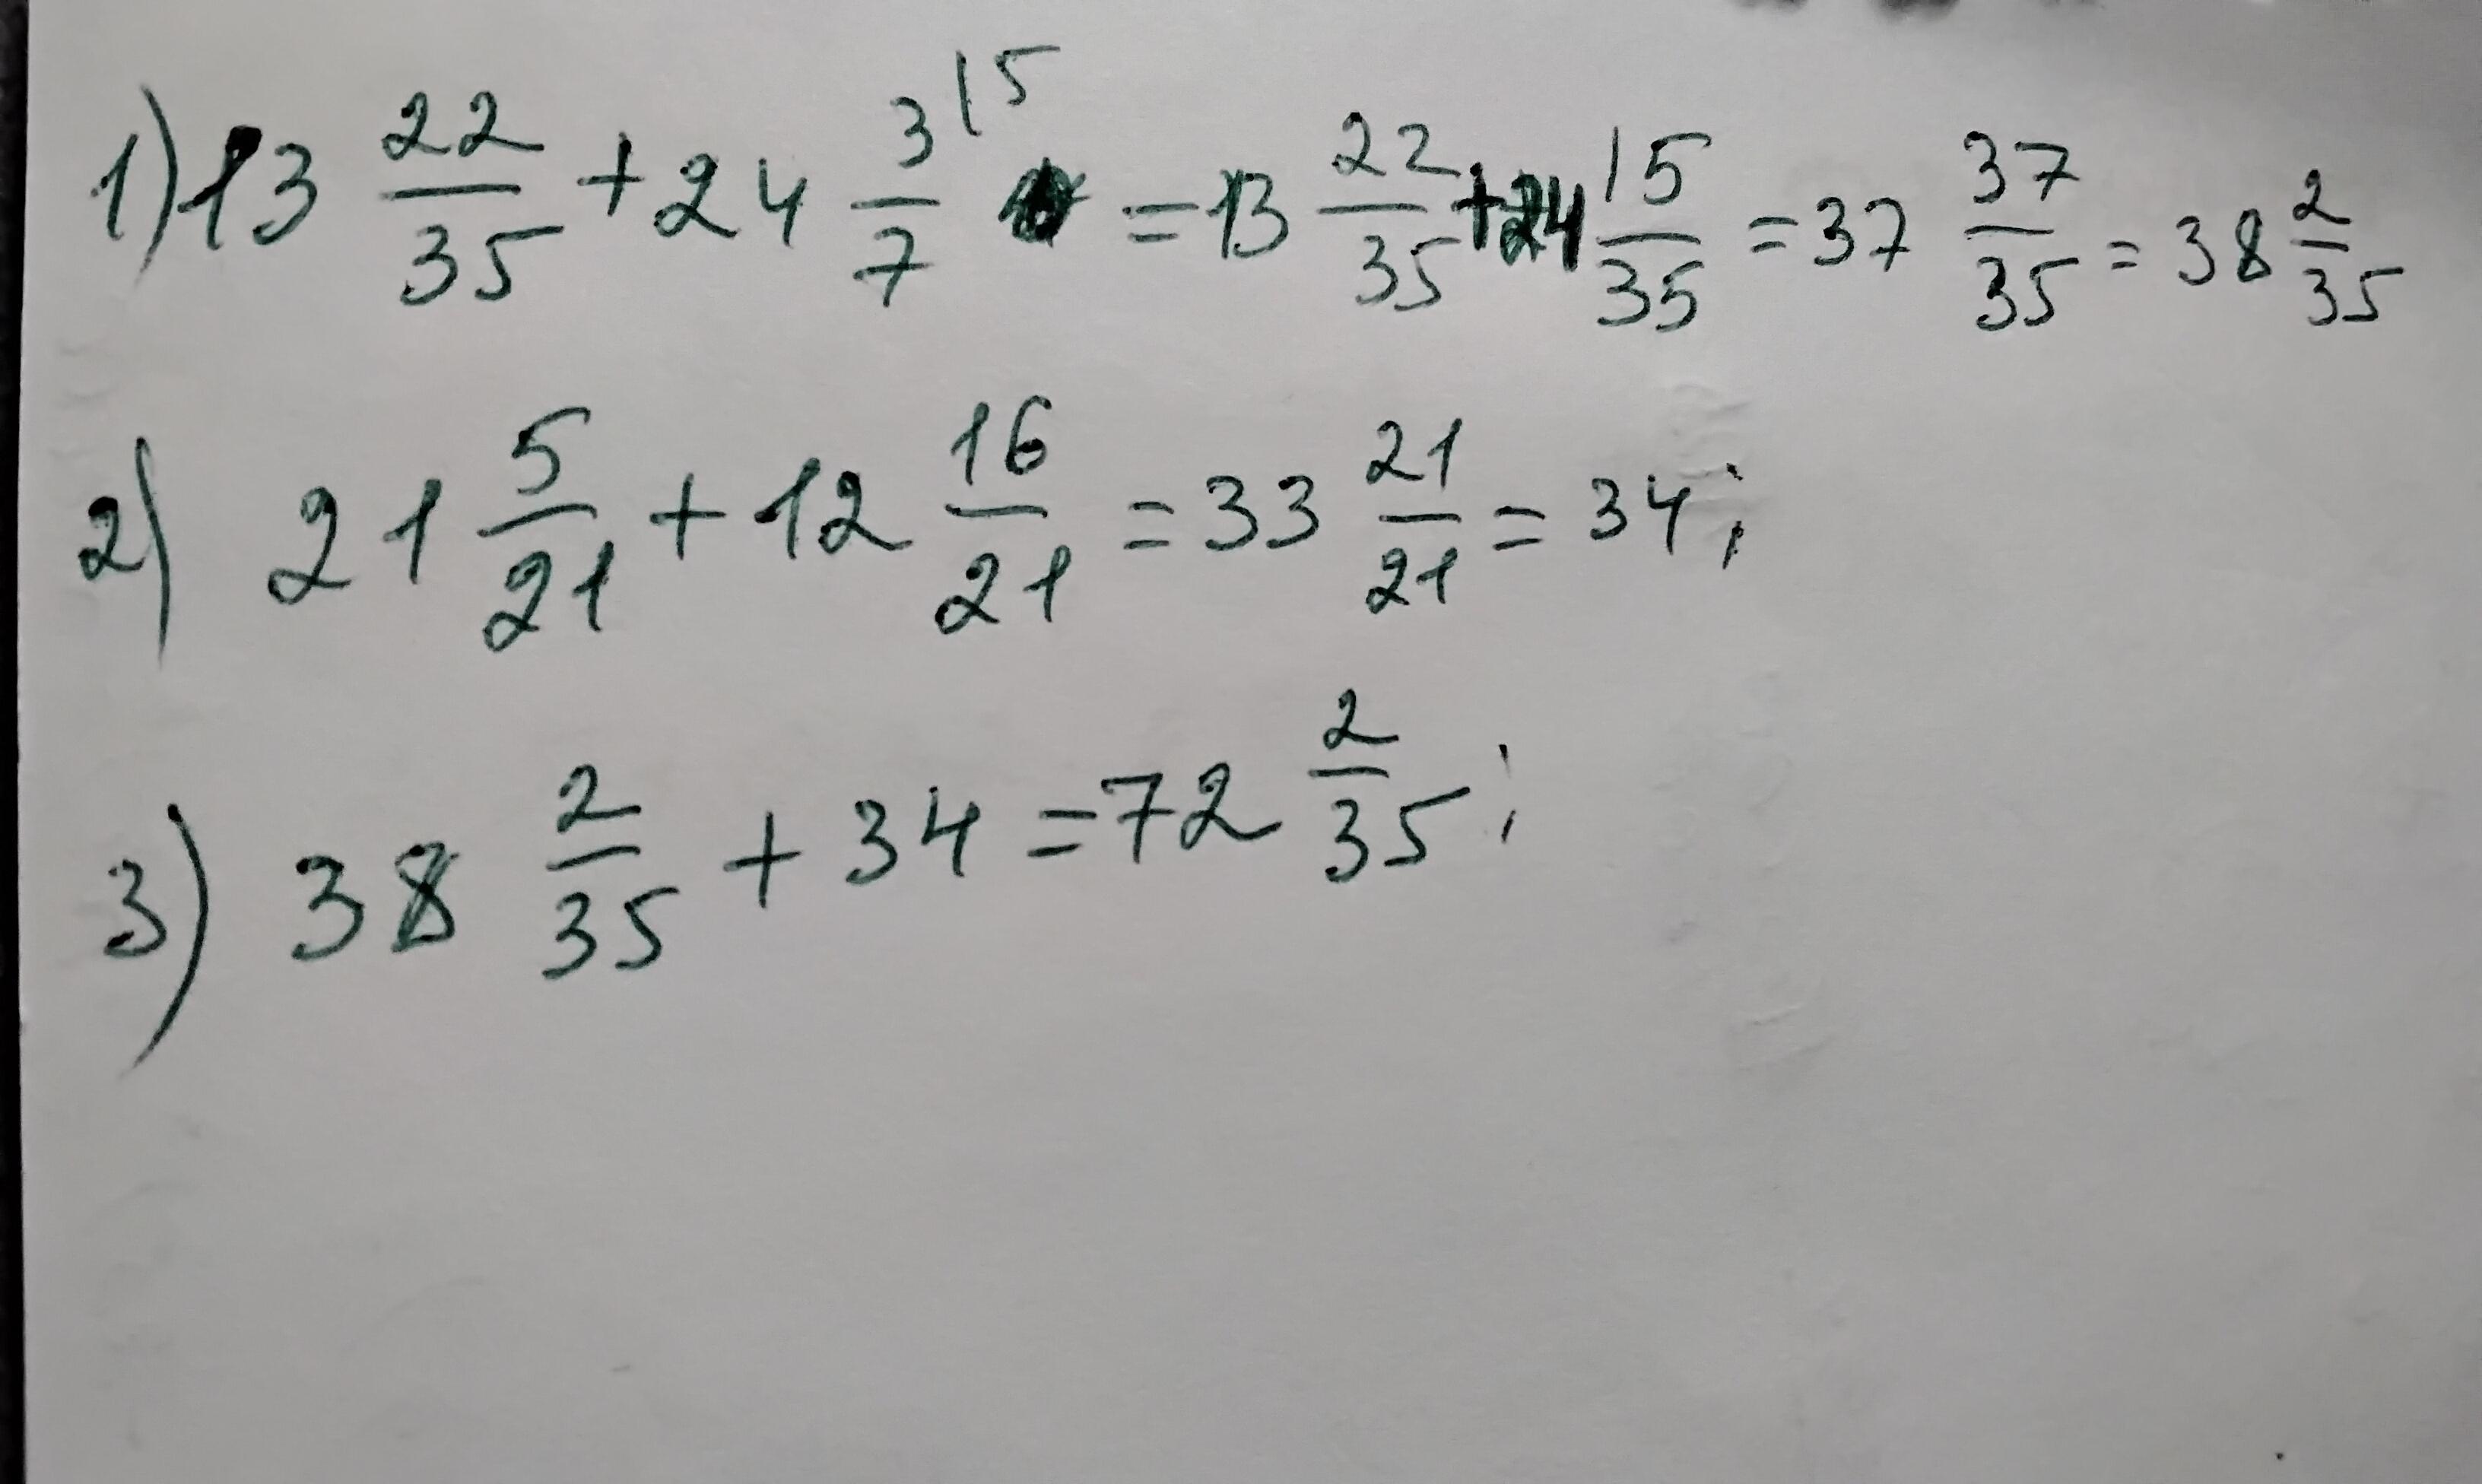 1) 13 22/35 + 24 3/7 15 = 13 22/35 + 24 15/35 = 37 37/35 = 38 2/35
2) 21 5/21 + 12 16/21 = 33 21/21 = 34;
3) 38 2/35 + 34 = 72 2/35;